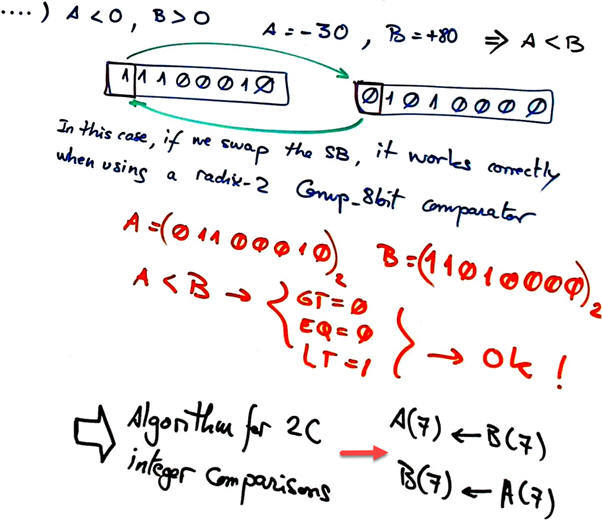 ....) A < 0, B > 0 A = -30, B = +80 ⇒ A < B
1 1 1 0 0 0 1 0 0 1 0 1 0 0 0 0
In this case, if we swap the SB, it works correctly
when using a radix-2 Comp_8bit comparator
A = (0 1 1 0 0 0 1 0)₂ B = (1 1 0 1 0 0 0 0)₂
A < B → { GT = 0
EQ = 0
LT = 1 } → Ok !
⇒ Algorithm for 2C
integer comparisons
→ A(7) ← B(7)
B(7) ← A(7)